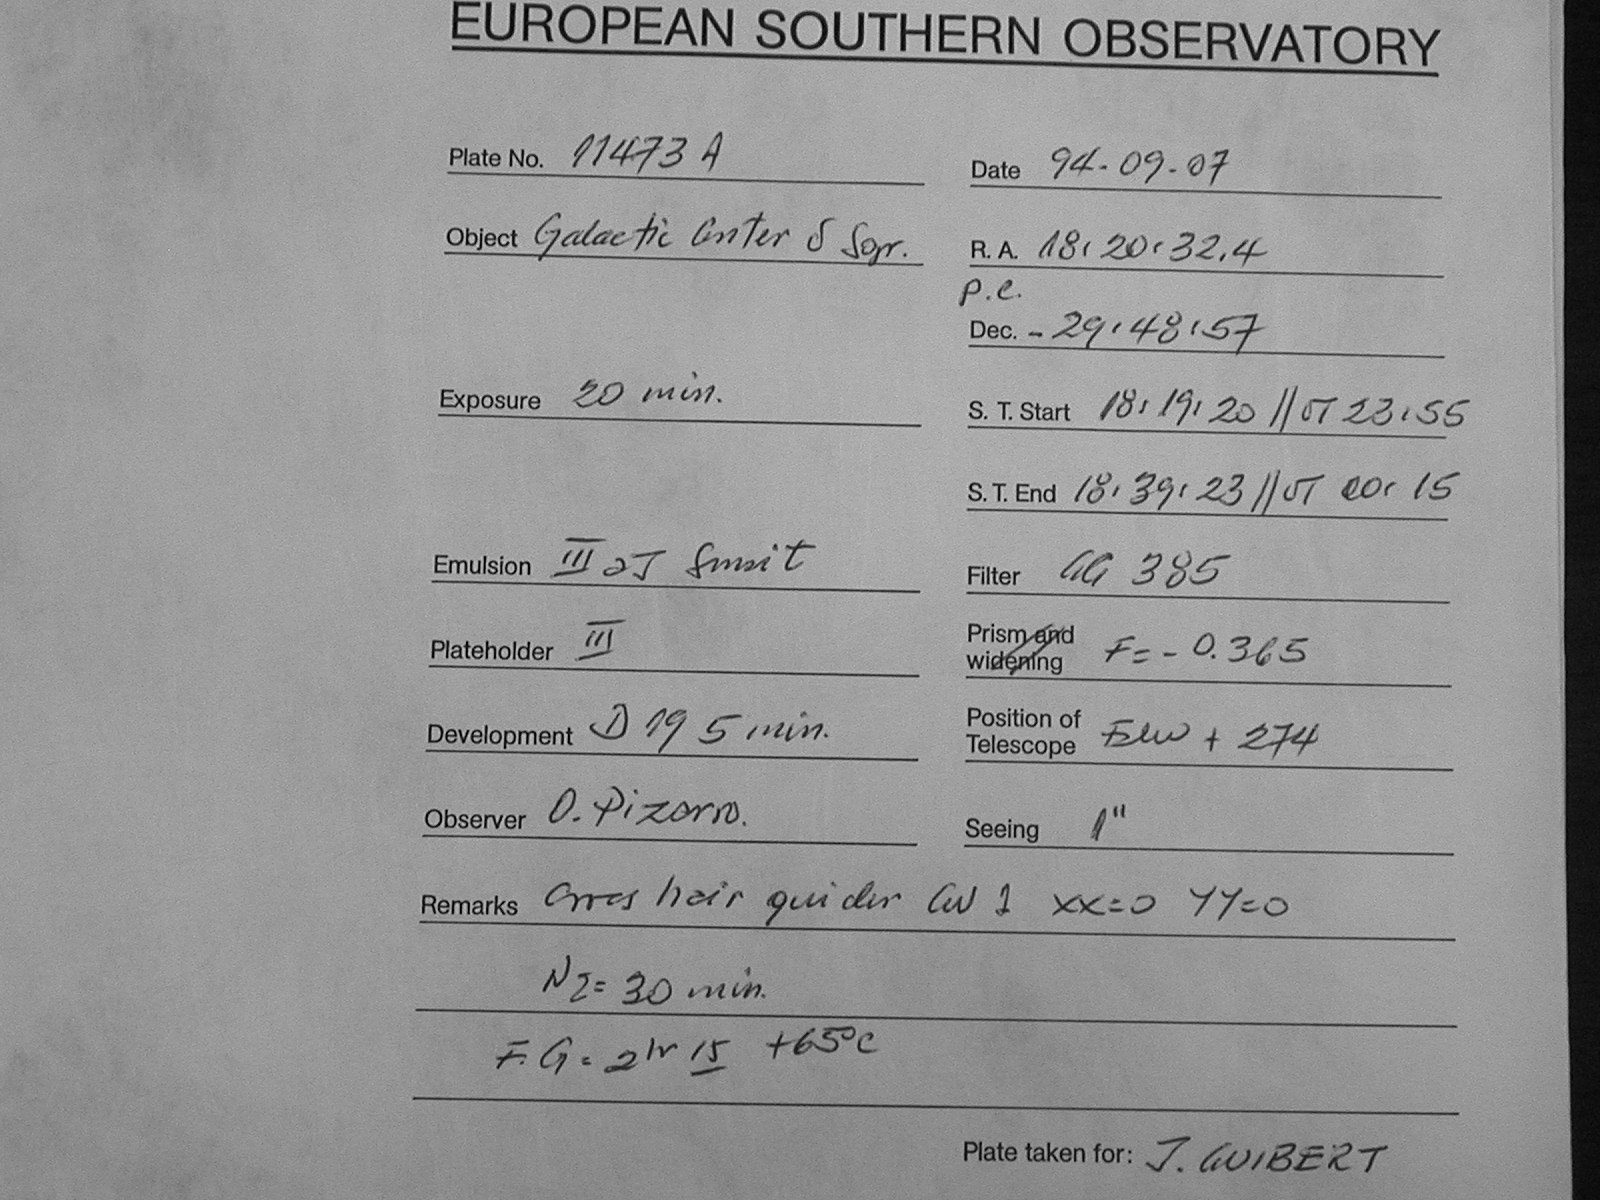 EUROPEAN SOUTHERN OBSERVATORY
Plate No. 11473 A
Date 94-09-07
Object Galactic Center & Sgr.
R. A. 18:20:32.4
p.c.
Dec. -29:48:57
Exposure 20 min.
S. T. Start 18:19:20 // UT 23:55
S. T. End 18:39:23 // UT 00:15
Emulsion III aJ
Filter GG 385
Plateholder III
Prism and widening F= -0.365
Development D 19 5 min.
Position of Telescope + 274
Observer O. Pizarro.
Seeing 1"
Remarks Cross hair guider CW 1 XX=0 YY=0
N2= 30 min.
F.G = 2hr 15 +65°C
Plate taken for: J. GUIBERT